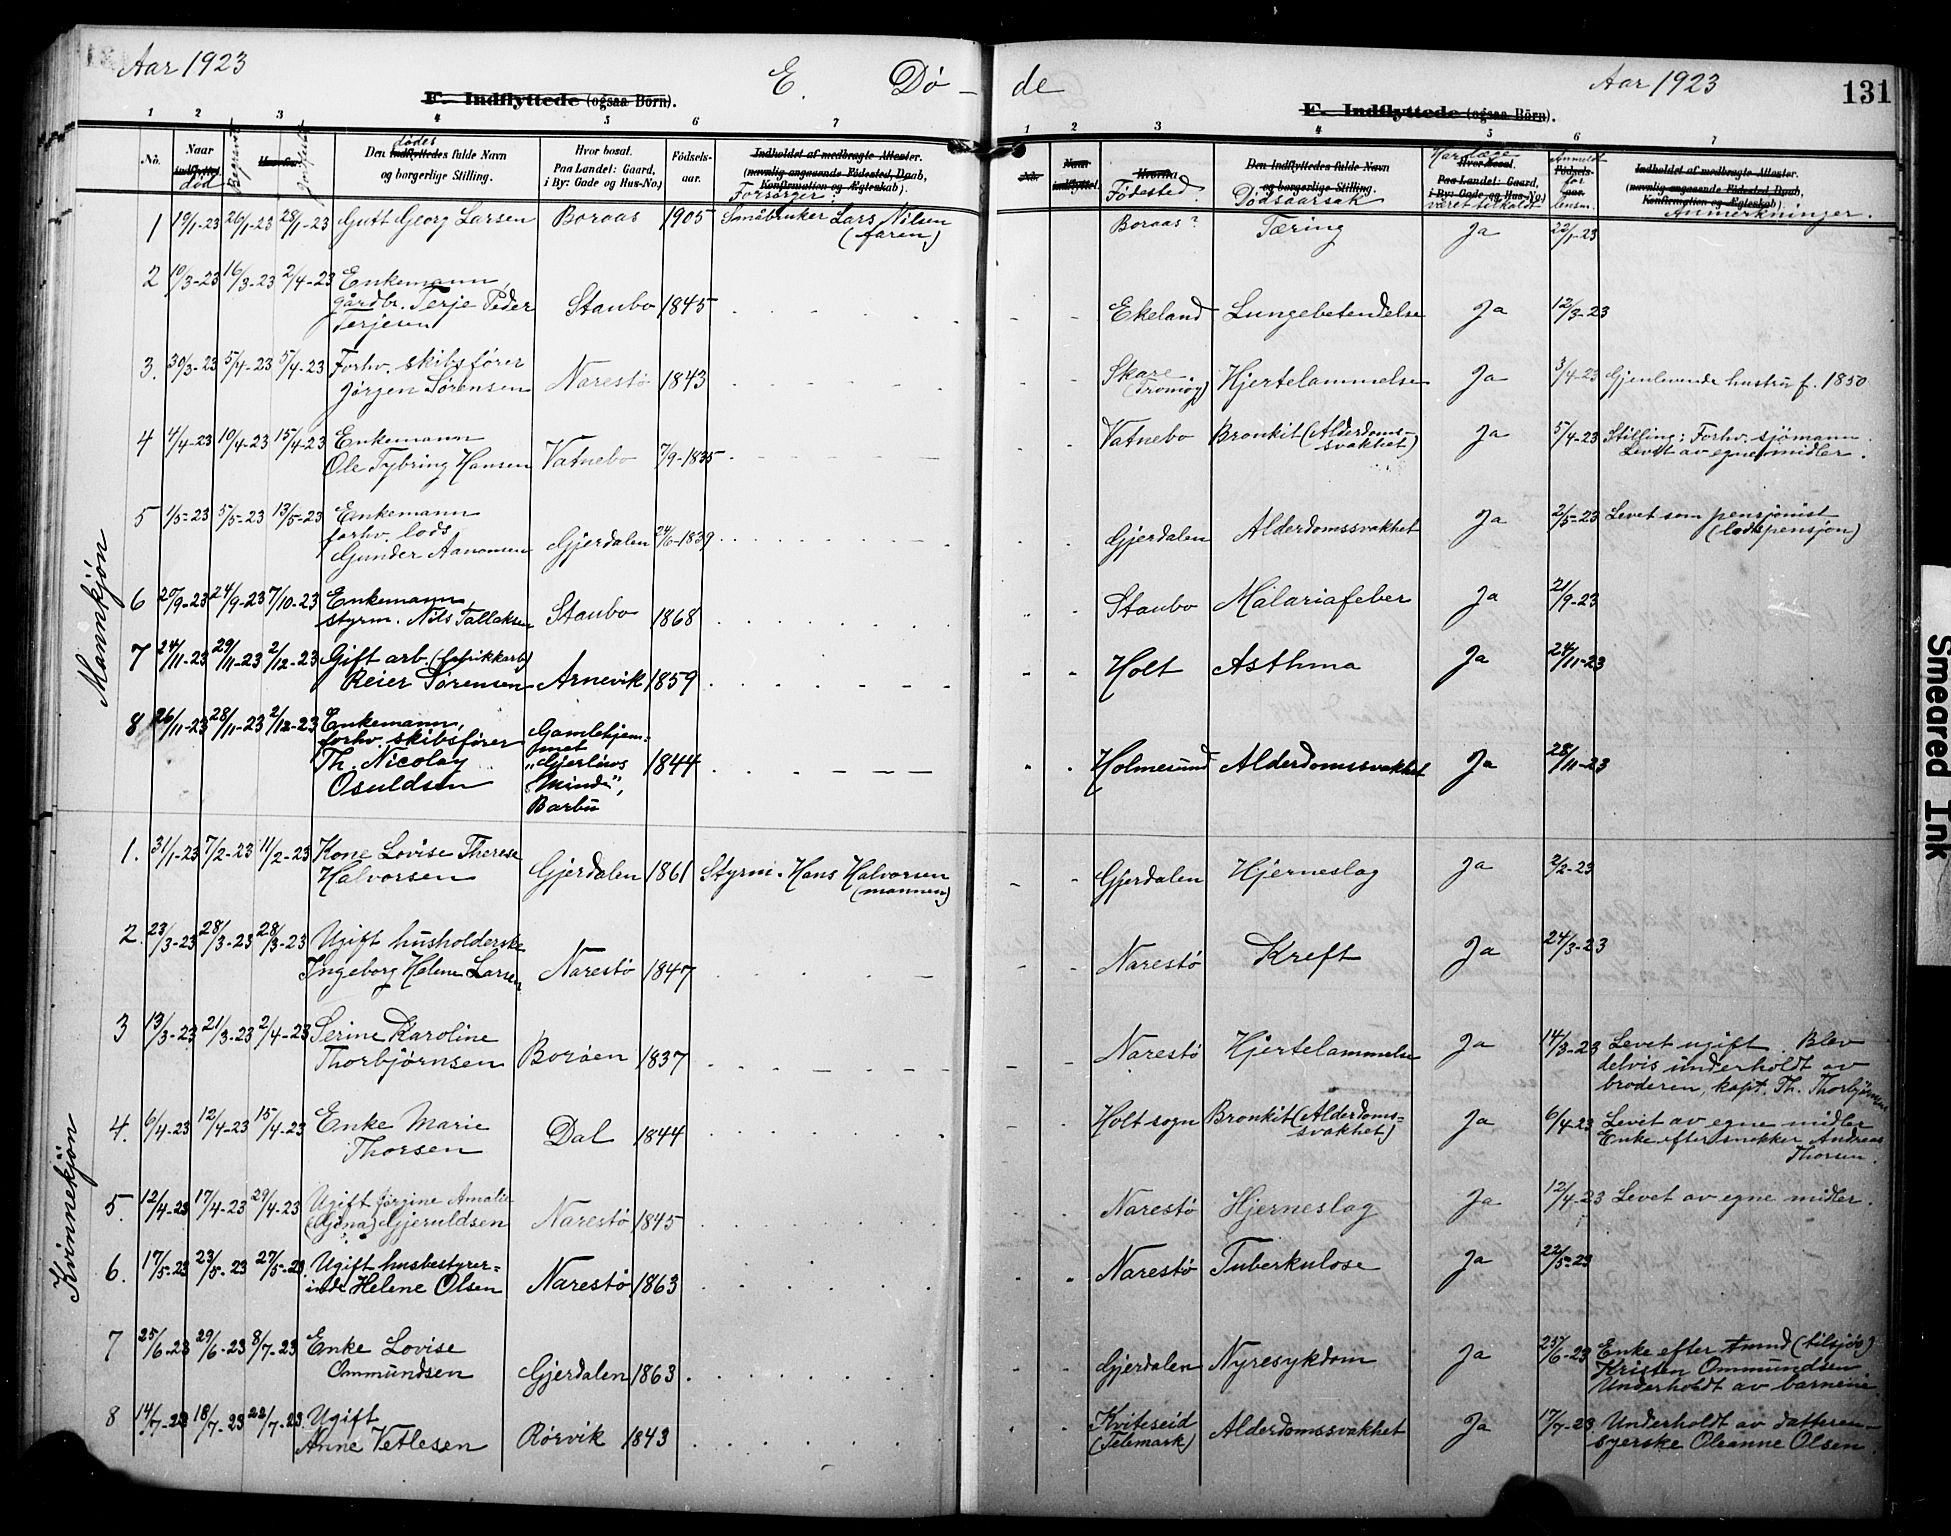 Aar 1923
E. Dø-
F. Indflyttede (ogsaa Børn).
1 2 3 4 5 6 7
No. Naar indflyttet død Begravet Jordfestet Den indflyttedes dødes fulde Navn og borgerlige Stilling. Hvor bosat. Paa Landet: Gaard, i By: Gade og Hus-No.) Fødsels-aar. Indholdet af medbragte Attester. (navnlig angaaende Fødested, Daab, Konfirmation og Ægteskab). Forsørger:
Mannkjøn
1 19/1-23 26/1-23 28/1-23 Gutt Georg Larsen Boraas 1905 Småbruker Lars Nilsen
(faren)
2 10/3-23 16/3-23 2/4-23 Enkemann,
gårdbr. Terje Peder Staubo 1845
Terjesen
3. 30/3-23 5/4-23 5/4-23 Forhv. skibsfører
Jørgen Sørensen Narestø 1843
4 4/4-23 10/4-23 15/4-23 Enkemann
Ole Tybring Hansen Vatnebo 7/9-1835
5 1/5-23 5/5-23 13/5-23 Enkemann
forhv. lods
Gunder Aanonsen Gjerdalen 24/6-1839
6 20/9-23 24/9-23 7/10-23 Enkemann,
styrm. Nils Tallaksen Staubo 1868
7 24/11-23 29/11-23 2/12-23 Gift arb. (fabrikkarb)
Reier Sørensen Arnevik 1859
8 26/11-23 28/11-23 2/12-23 Enkemann, Gamlehjem-
forhv. skibsfører met
Th. Nicolay "Gjerløvs 1844
Osuldsen Minde",
Barbu
Kvinnekjøn
1. 31/1-23 7/2-23 11/2-23 Kone Lovise Therese
Halvorsen Gjerdalen 1861 Styrm. Hans Halvorsen
(mannen)
2. 23/3-23 28/3-23 28/3-23 Ugift husholderske
Ingeborg Helene Larsen Narestø 1847
3 13/3-23 21/3-23 2/4-23 Serine Karoline
Thorbjørnsen Borøen 1837
4. 6/4-23 12/4-23 15/4-23 Enke Marie
Thorsen Dal 1844
5. 12/4-23 17/4-23 29/4-23 Ugift Jørgine Amalie
Gjeruldsen Narestø 1845
6. 17/5-23 23/5-23 27/5-23 Ugift husbestyrer-
inde Helene Olsen Narestø 1863
7 25/6-23 29/6-23 8/7-23 Enke Lovise
Ommundsen Gjerdalen 1863
8 14/7-23 18/7-23 22/7-23 Ugift
Anne Vetlesen Rørvik 1843
de
Aar 1923
131
F. Indflyttede (ogsaa Børn).
1 2 3 4 5 6 7
No. Naar indflyttet. Hvorfra Fødested. Den Indflyttedes fulde Navn og borgerlige Stilling. Dødsaarsak Hvor bosat. Har læge Paa Landet: Gaard, i By: Gade og Hus-No.) været tilkaldt Anmeldt Fødsels-aar. for lensm. Indholdet af medbragte Attester. (navnlig angaaende Fødested, Daab, Konfirmation og Ægteskab). Anmerkninger.
Boraas? Tæring Ja 22/1-23
Ekeland Lungebetendelse Ja 12/3-23
Skare
(Tromøy) Hjertelammelse Ja 3/4-23 Gjenlevende hustru f. 1850
Vatnebo Bronkit (Alderdoms-
svakhet) Ja 5/4-23 Stilling: Forhv. sjømann.
Levet av egne midler.
Gjerdalen Alderdomssvakhet Ja 2/5-23 Levet som pensjonist
(lodspensjon)
Staubo Malariafeber Ja 21/9-23
Holt Asthma Ja 24/11-23
Holmesund Alderdomssvakhet Ja 28/11-23
Gjerdalen Hjerneslag Ja 2/2-23
Narestø Kreft Ja 24/3-23
Narestø Hjertelammelse Ja 14/3-23 Levet ugift. Blev
delvis underholdt av
broderen, kapt. Th. Thorbjørnsen
Holt sogn Bronkit (Alderdoms-
svakhet) Ja 6/4-23 Levet av egne midler
Enke efter snekker Andreas
Thorsen.
Narestø Hjerneslag Ja 12/4-23 Levet av egne midler.
Narestø Tuberkulose Ja 22/5-23
Gjerdalen Nyresykdom Ja 25/6-23 Enke efter Amund (tilsjøs)
Kristen Ommundsen
Underholdt av barnene.
Kviteseid
(Telemark) Alderdomssvakhet Ja 17/7-23 Underholdt av datteren -
syerske Oleanne Olsen.
Smeared Ink